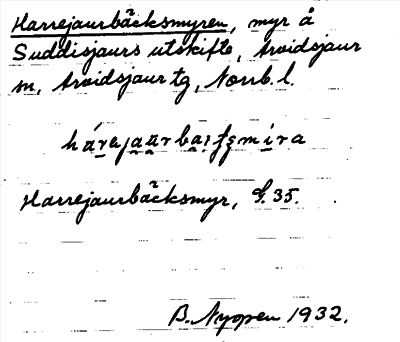 Harrejaurbäcksmyren, myr å
Suddisjaurs utskifte, Arvidsjaur
sn, Arvidsjaur tg, Norrb. l.
Harrejaurbäcksmyr, S. 35.
B. Nyopen 1932.